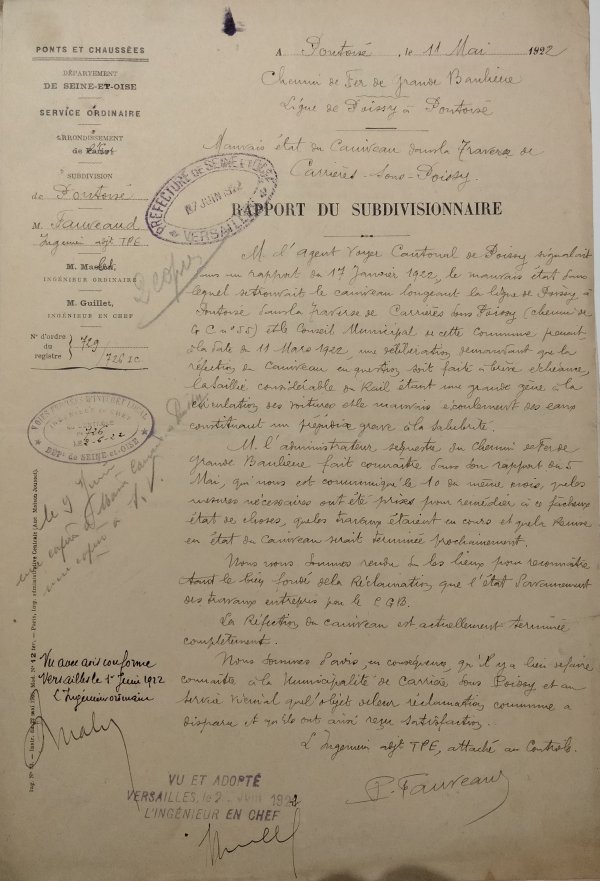 PONTS ET CHAUSSÉES
DÉPARTEMENT
DE SEINE-ET-OISE
SERVICE ORDINAIRE
ARRONDISSEMENT
de
SUBDIVISION
de Pontoise
M. Fauveaud
Ingénieur adjt TPE
M.
INGÉNIEUR ORDINAIRE
M. Guillet,
INGÉNIEUR EN CHEF
N° d'ordre
du
registre
729
726 I.C.
A Pontoise, le 11 Mai 1922
Chemin de Fer de Grande Banlieue
Ligne de Poissy à Pontoise
Mauvais état du Caniveau dans la Traverse de
Carrières-sous-Poissy.
PRÉFECTURE DE SEINE-ET-OISE
JUIN 1922
VERSAILLES
RAPPORT DU SUBDIVISIONNAIRE
M. l'Agent Voyer Cantonal de Poissy signalait
dans un rapport du 17 Janvier 1922, le mauvais état dans
lequel se trouvait le caniveau longeant la ligne de Poissy à
Pontoise dans la Traverse de Carrières sous Poissy (chemin de
G C n° 55) et le Conseil Municipal de cette Commune prenait
à la date du 11 Mars 1922, une délibération demandant que la
réfection du Caniveau en question soit faite à brève échéance,
la saillie considérable du Rail étant une grande gêne à la
circulation des voitures et le mauvais écoulement des eaux
constituant un préjudice grave à la salubrité.
M. l'administrateur séquestre du Chemin de Fer de
Grande Banlieue fait connaître dans son rapport du 5
Mai, qui nous est communiqué le 10 du même mois, que les
mesures nécessaires ont été prises pour remédier à ce fâcheux
état de choses, que les travaux étaient en cours et que la Remise
en état du Caniveau serait terminée prochainement.
Nous nous sommes rendu sur les lieux pour reconnaître
tant le bien fondé de la Réclamation que l'état d'avancement
des travaux entrepris par le C G B.
La Réfection du caniveau est actuellement terminée
complètement.
Nous sommes d'avis, en conséquence, qu'il y a lieu de faire
connaître à la Municipalité de Carrières sous Poissy et au
Service Vicinal que l'objet de leur réclamation commune a
disparu et qu'ils ont ainsi reçu satisfaction.
L'Ingénieur adjt TPE, attaché au Contrôle.
P. Fauveaud
2 copies
INGÉNIEUR EN CHEF
726
DÉPT de SEINE-ET-OISE
le 9 Juin
une copie à
une copie à
Vu avec avis conforme
Versailles le 1er Juin 1922
L'Ingénieur ordinaire
VU ET ADOPTÉ
VERSAILLES, le 2 JUIN 1922
L'INGÉNIEUR EN CHEF